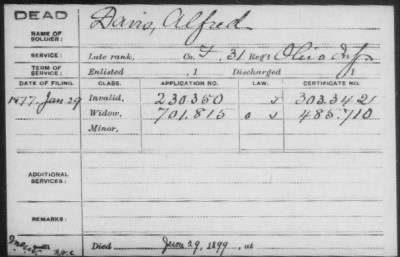 DEAD
NAME OF SOLDIER: Davis, Alfred
SERVICE: Late rank, Co. F, 31 Reg't Ohio Inf
TERM OF SERVICE: Enlisted , 1 Discharged , 1
DATE OF FILING. CLASS. APPLICATION NO. LAW. CERTIFICATE NO.
1877. Jan 29 Invalid, 230.350 303.342
Widow, 701.815 485.710
Minor,
ADDITIONAL SERVICES:
REMARKS:
Died June 29, 1899, at